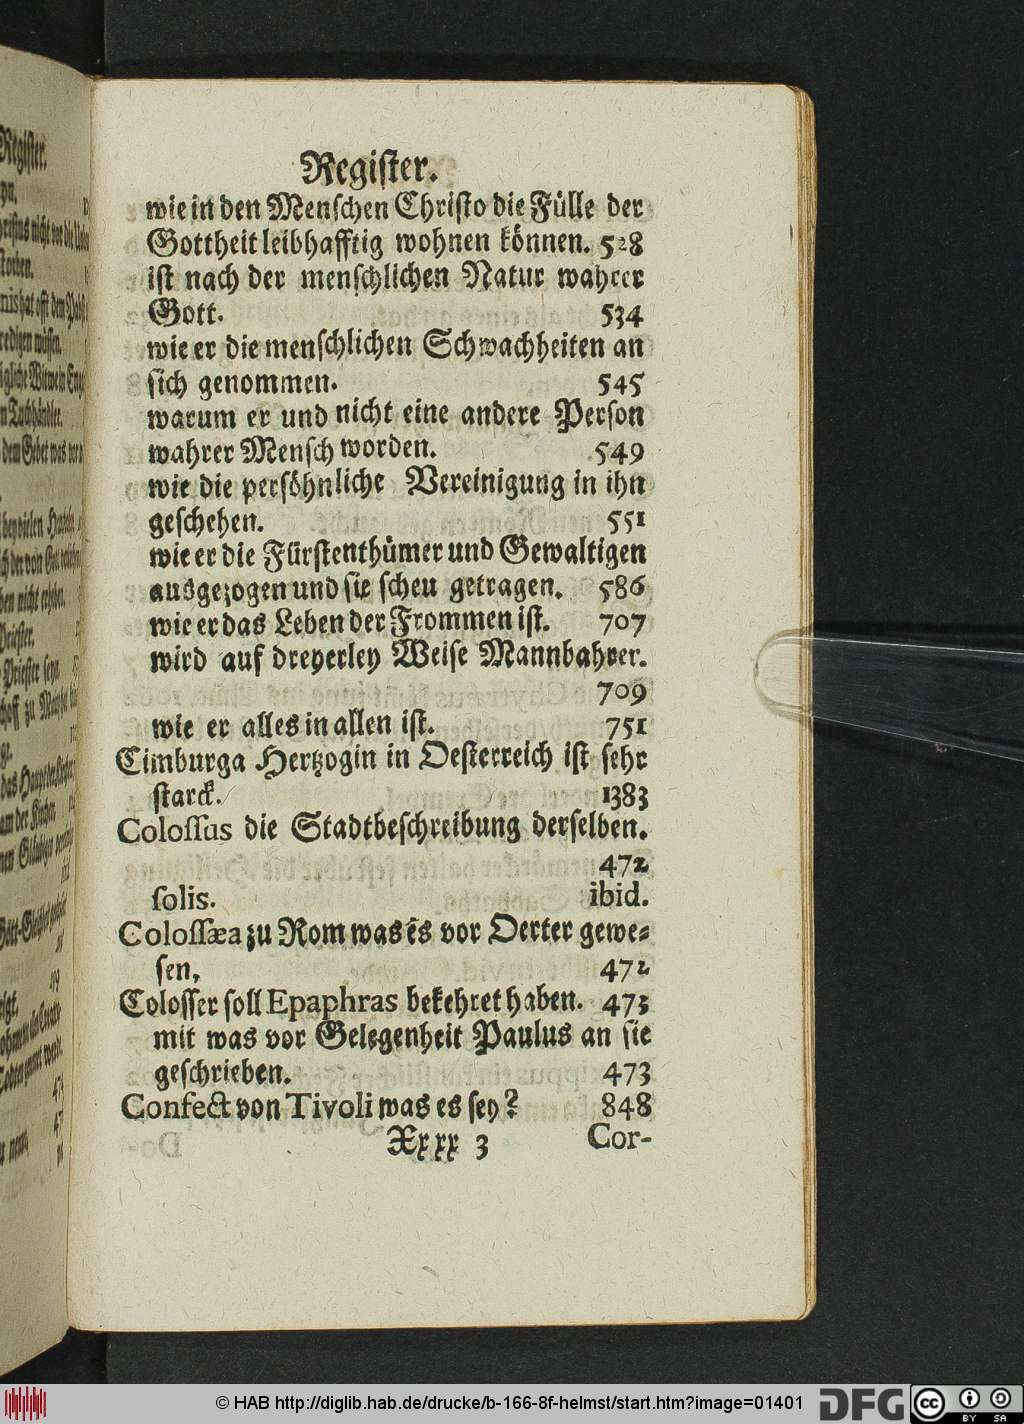 Register.
wie in den Menschen Christo die Fülle der
Gottheit leibhafftig wohnen können. 528
ist nach der menschlichen Natur wahrer
Gott. 534
wie er die menschlichen Schwachheiten an
sich genommen. 545
warum er und nicht eine andere Person
wahrer Mensch worden. 549
wie die persöhnliche Vereinigung in ihn
geschehen. 551
wie er die Fürstenthümer und Gewaltigen
ausgezogen und sie scheu getragen. 586
wie er das Leben der Frommen ist. 707
wird auf dreyerley Weise Mannbahrer.
709
wie er alles in allen ist. 751
Cimburga Hertzogin in Oesterreich ist sehr
starck. 1383
Colossus die Stadtbeschreibung derselben.
472
solis. ibid.
Colossæa zu Rom was es vor Oerter gewe-
sen, 472
Colosser soll Epaphras bekehret haben. 473
mit was vor Gelegenheit Paulus an sie
geschrieben. 473
Confect von Tivoli was es sey? 848
Xxxx 3 Cor-
© HAB http://diglib.hab.de/drucke/b-166-8f-helmst/start.htm?image=01401
DFG
cc BY SA